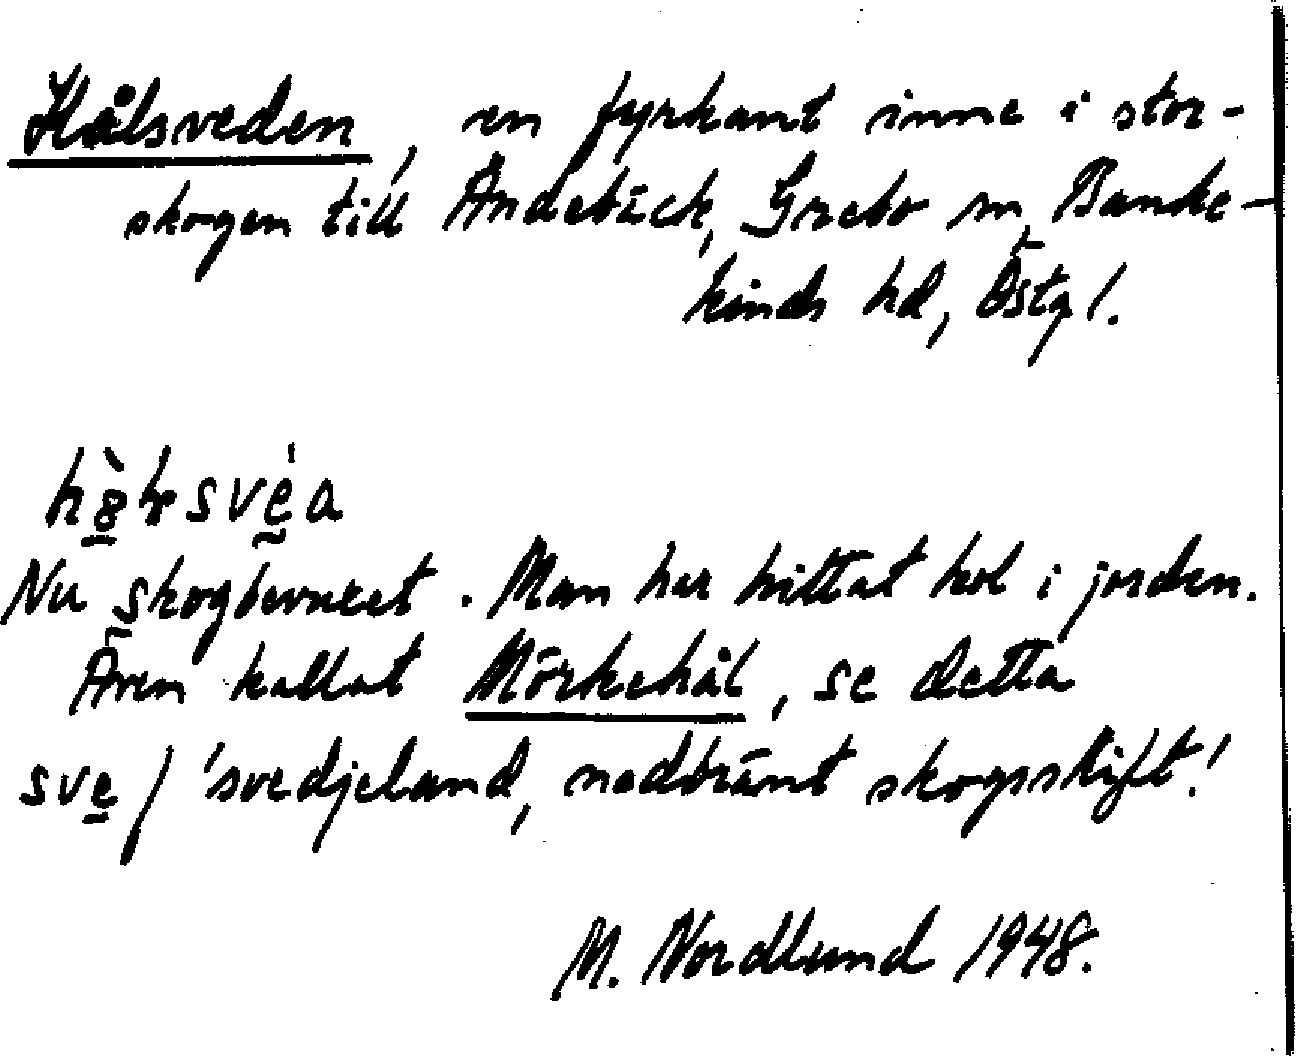 Hålsveden, en fyrkant inne i stor-
skogen till Ändebäck, Grebo sn, Banke-
kinds hd, Östgl.
Nu skogbevuxet. Man har hittat kol i jorden.
Även kallat Mörkehål, se detta
sve f 'svedjeland, nedbränt skogsskift'
M. Nordlund 1948.